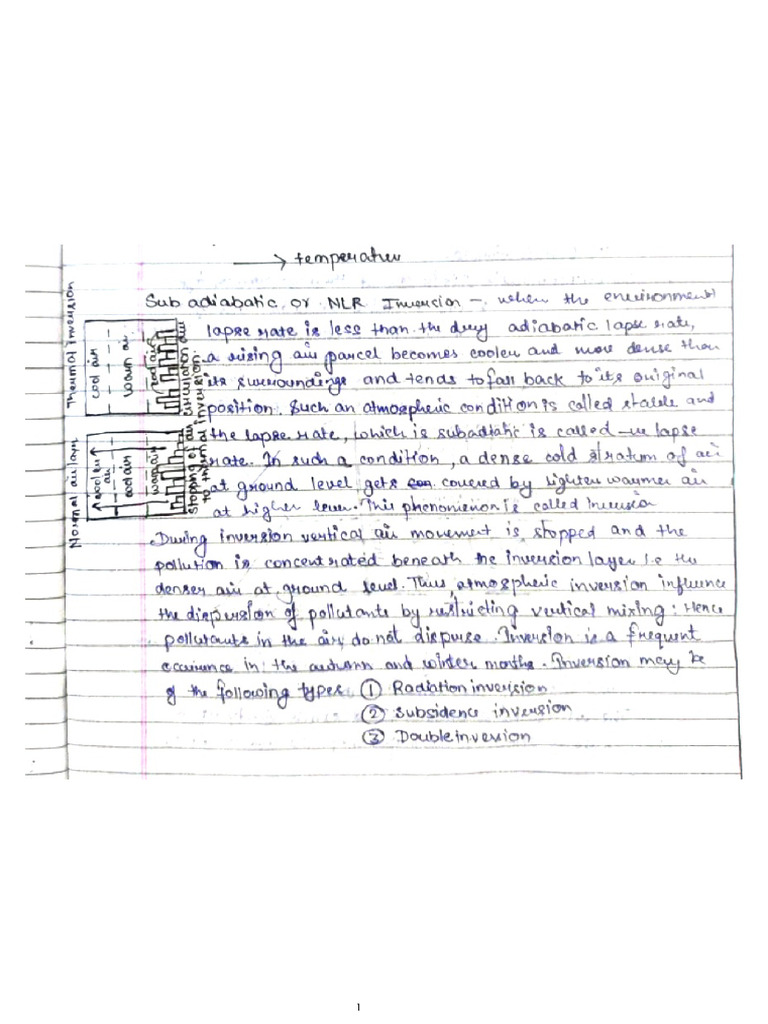 → temperatur
Sub adiabatic or NLR Inversion - when the environment
lapse rate is less than the dry adiabatic lapse rate,
a rising air parcel becomes cooler and more dense than
its surroundings and tends to fall back to its original
position. Such an atmospheric condition is called stable and
the lapse rate, which is subadiatic is called -ve lapse
rate. In such a condition, a dense cold stratum of air
at ground level gets covered by lighter warmer air
at higher level. This phenomenon is called inversion
During inversion vertical air movement is stopped and the
pollution is concentrated beneath the inversion layer i.e the
denser air at ground level. Thus, atmospheric inversion influence
the dispersion of pollutants by restricting vertical mixing. Hence
pollutants in the air do not disperse. Inversion is a frequent
occurence in the autumn and winter months. Inversion may be
of the following types ① Radiation inversion
② Subsidence inversion
③ Double inversion
Thermal inversion
cool air
warm air
cool air
Stopping of air circulation due
to thermal inversion.
Normal air layers
cooler air
cool air
warm air
1